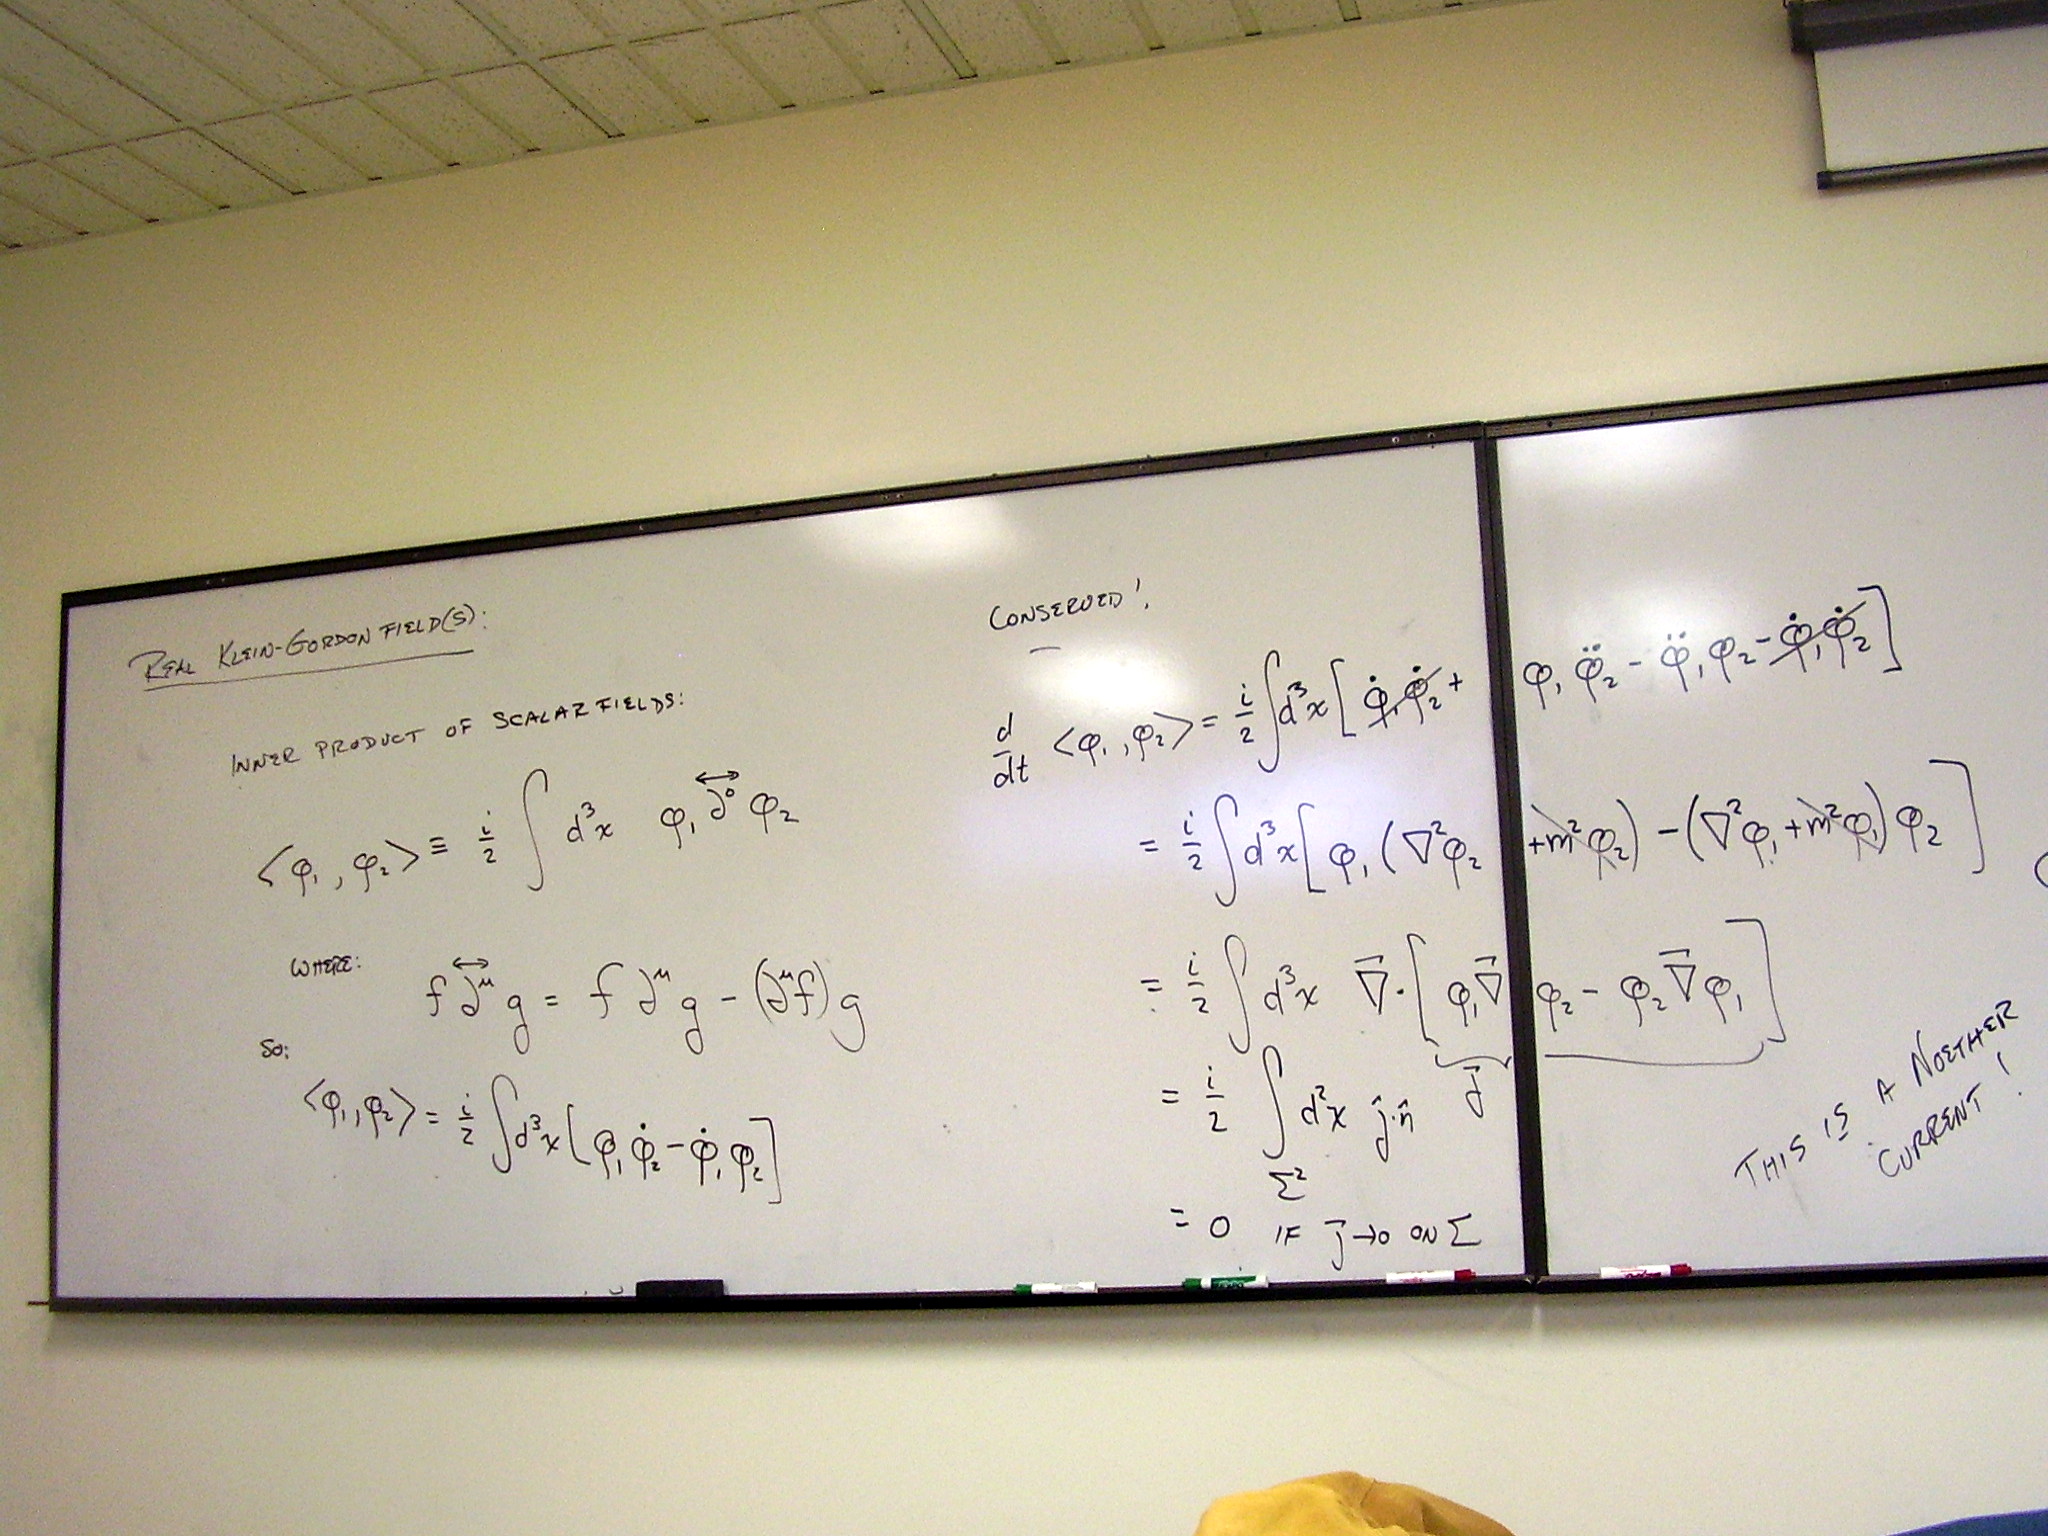 REAL KLEIN-GORDON FIELD(S):
INNER PRODUCT OF SCALAR FIELDS:
⟨φ₁, φ₂⟩ ≡ i/2 ∫ d³x φ₁ ∂⃡⁰ φ₂
WHERE:
f ∂⃡^μ g = f ∂^μ g - (∂^μ f) g
SO:
⟨φ₁, φ₂⟩ = i/2 ∫ d³x [φ₁ φ̇₂ - φ̇₁ φ₂]
CONSERVED!
d/dt ⟨φ₁, φ₂⟩ = i/2 ∫ d³x [φ̇₁ φ̇₂ + φ₁ φ̈₂ - φ̈₁ φ₂ - φ̇₁ φ̇₂]
= i/2 ∫ d³x [φ₁ (∇²φ₂ + m²φ₂) - (∇²φ₁ + m²φ₁) φ₂]
= i/2 ∫ d³x ∇⃗ · [φ₁ ∇⃗ φ₂ - φ₂ ∇⃗ φ₁]
j⃗
= i/2 ∫ d²x j⃗ · n̂
Σ²
= 0 IF j⃗ → 0 ON Σ
THIS IS A NOETHER
CURRENT!